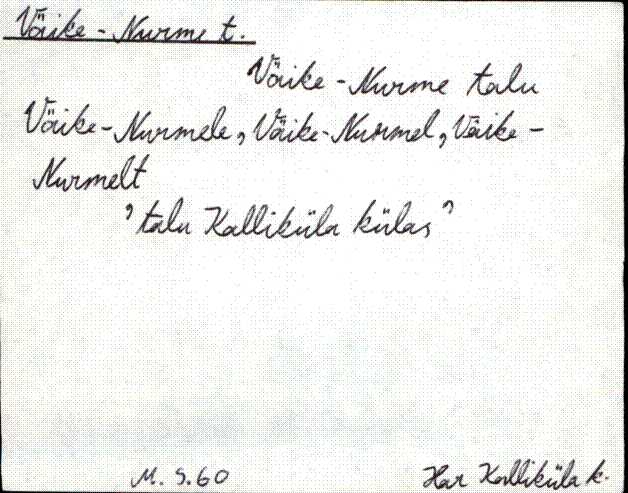 Väike-Nurme t.
Väike-Nurme talu
Väike-Nurmele, Väike-Nurmel, Väike-
Nurmelt
’talu Kalliküla külas’
M. S. 60 Har Kalliküla k.